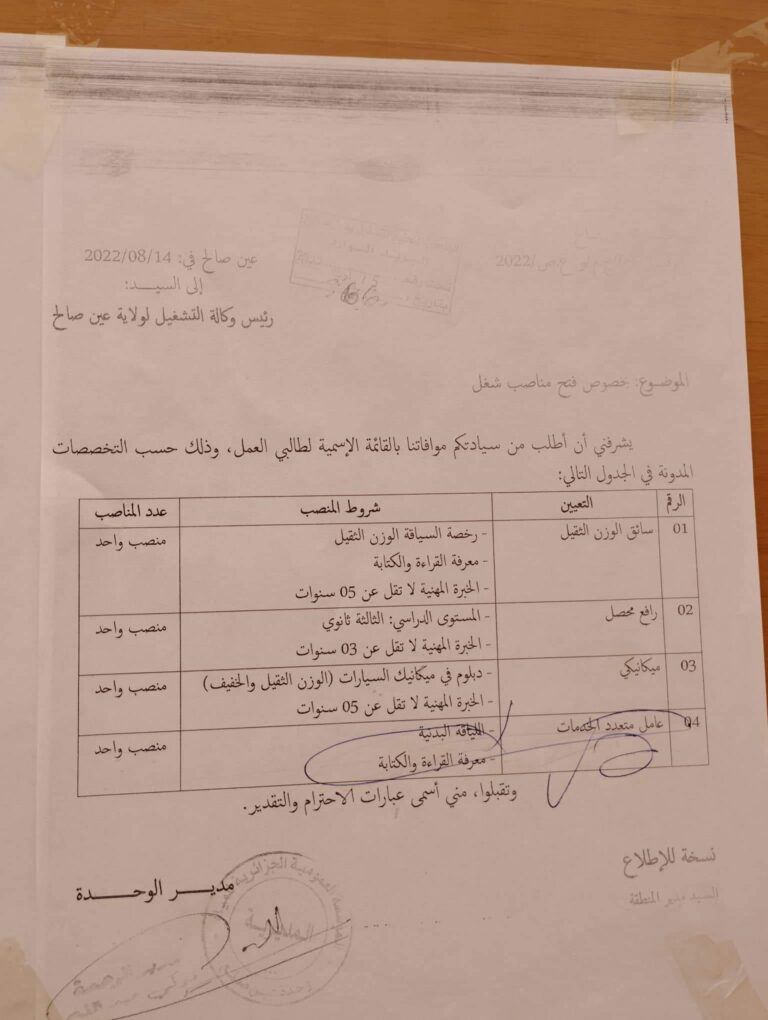 عين صالح في: 2022/08/14
إلى السيـــد:
رئيس وكالة التشغيل لولاية عين صالح
الموضـوع: بخصوص فتح مناصب شغل
يشرفني أن أطلب من سيادتكم موافاتنا بالقائمة الإسمية لطالبي العمل، وذلك حسب التخصصات
المدونة في الجدول التالي:
الرقم التعيين شروط المنصب عدد المناصب
01 سائق الوزن الثقيل - رخصة السياقة الوزن الثقيل منصب واحد
- معرفة القراءة والكتابة
- الخبرة المهنية لا تقل عن 05 سنوات
02 رافع محصل - المستوى الدراسي: الثالثة ثانوي منصب واحد
- الخبرة المهنية لا تقل عن 03 سنوات
03 ميكانيكي - دبلوم في ميكانيك السيارات (الوزن الثقيل والخفيف) منصب واحد
- الخبرة المهنية لا تقل عن 05 سنوات
04 عامل متعدد الخدمات - اللياقة البدنية منصب واحد
- معرفة القراءة والكتابة
وتقبلوا، مني أسمى عبارات الاحترام والتقدير.
نسخة للإطلاع
السيد مدير المنطقة
مديـــر الوحــــدة